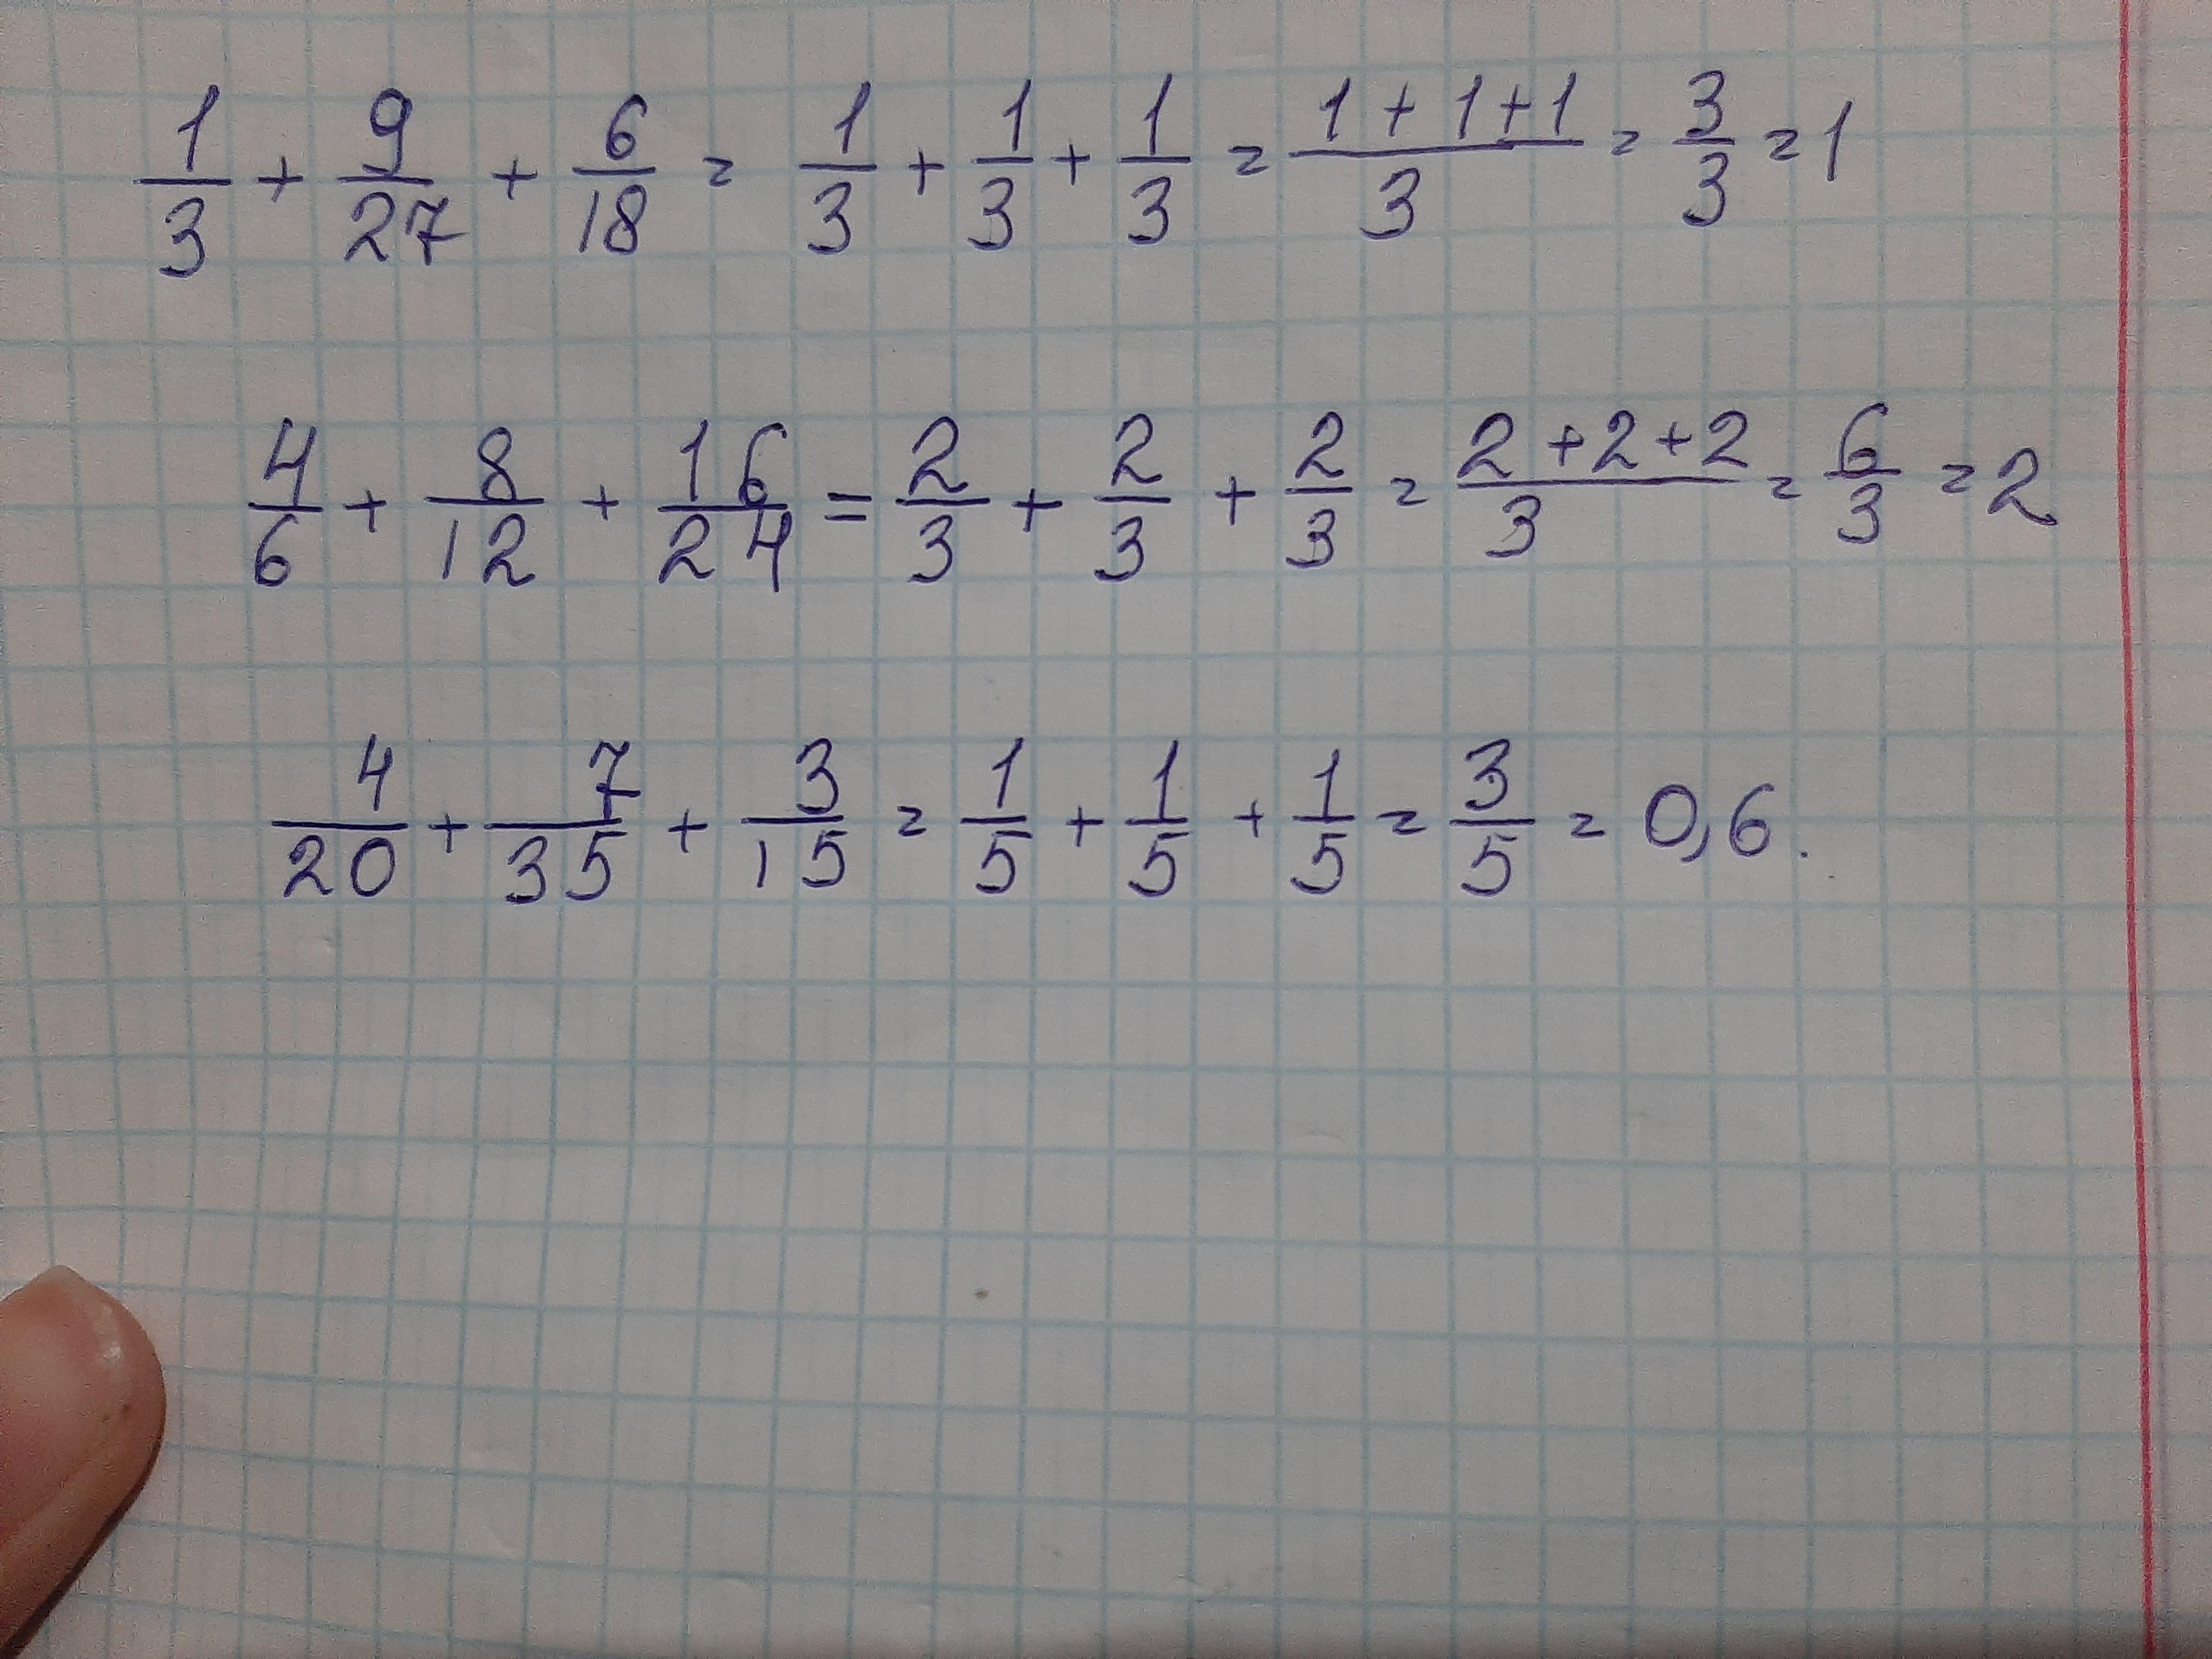 1/3 + 9/27 + 6/18 = 1/3 + 1/3 + 1/3 = (1+1+1)/3 = 3/3 = 1
4/6 + 8/12 + 16/24 = 2/3 + 2/3 + 2/3 = (2+2+2)/3 = 6/3 = 2
4/20 + 7/35 + 3/15 = 1/5 + 1/5 + 1/5 = 3/5 = 0,6.